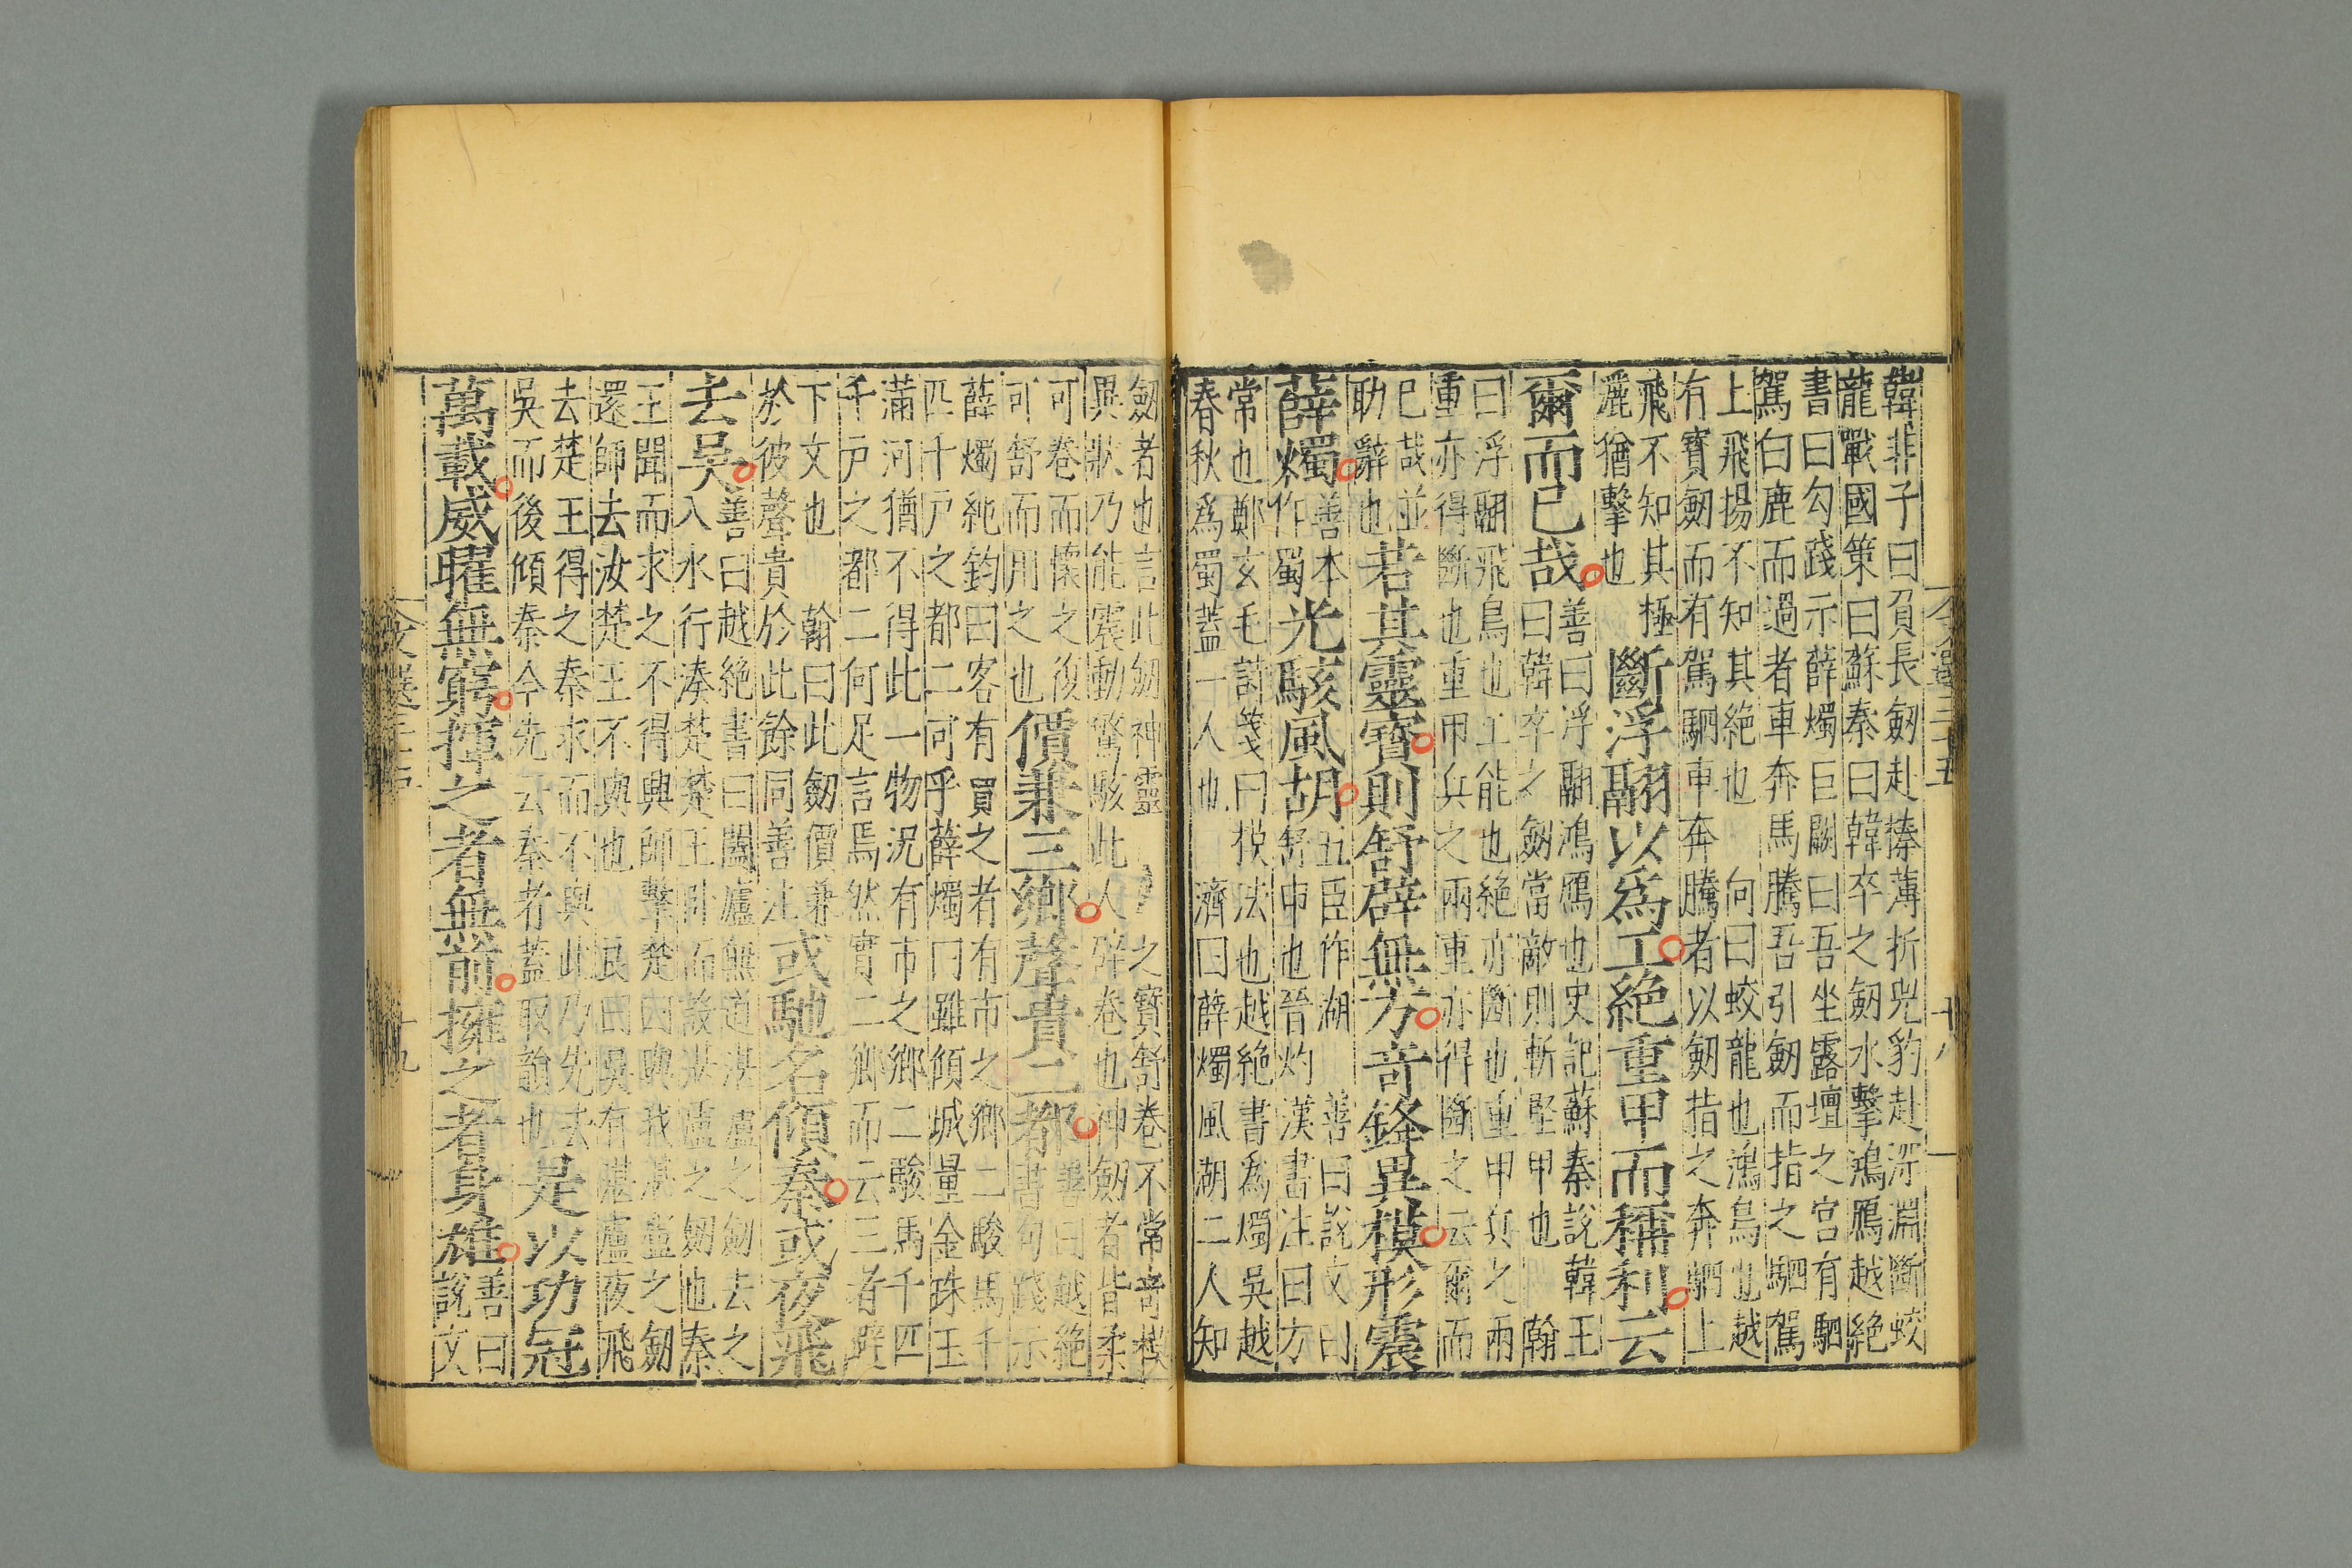 韓非子曰負長劒赴榛薄折兕豹赴深淵斷蛟
龍戰國策曰蘇秦曰韓卒之劒水擊鴻鴈越絶
書曰勾踐示薛燭巨闕曰吾坐露壇之宫有駟
駕白鹿而過者車奔馬騰吾引劒而指之駟駕
上飛揚不知其絶也 向曰蛟龍也鴻鳥也越
有寳劒而有駕駟車奔騰者以劒指之奔駟上
飛不知其極
灑猶擊也
斷浮翮以爲工絶重甲而稱利云
爾而已哉
善曰浮翮鴻鴈也史記蘇秦說韓王
曰韓卒之劒當敵則斬堅甲也 翰
曰浮翮飛鳥也工能也絶亦斷也重甲兵之兩
重亦得斷也重甲兵之兩重亦得斷之云爾而
已哉並
助辭也
若其靈寳則舒辟無方竒鋒異模形震
薛燭
善本
作蜀
光駭風胡
五臣作湖 善曰說文曰
舒申也晉灼漢書注曰方
常也鄭玄毛詩箋曰模法也越絶書爲燭吳越
春秋爲蜀蓋一人也 濟曰薛燭風湖二人知
劒者也言此劒神靈之寳舒卷不常竒模
異狀乃能震動驚駭此人辟卷也神劒者皆柔
可卷而懷之復
可舒而用之也
價兼三鄉聲貴二都
善曰越絶
書句踐示
薛燭純鈞曰客有買之者有市之鄉二駿馬千
匹千戸之都二可乎薛燭曰雖傾城量金珠玉
滿河猶不得此一物况有市之鄉二駿馬千匹
千戸之都二何足言焉然實二鄉而云三者避
下文也 翰曰此劒價兼
於彼聲貴於此餘同善注
或馳名傾秦或夜飛
去吳
善曰越絶書曰闔廬無道湛盧之劒去之
入水行湊楚楚王卧而設湛盧之劒也秦
王聞而求之不得興師擊楚曰與我湛盧之劒
還師去汝楚王不與也 良曰吳有湛盧夜飛
去楚王得之秦求而不與此乃先去
吳而後傾秦今先云秦者蓋取韻也
是以功冠
萬載威曜無窮揮之者無前擁之者身雄
善曰
說文